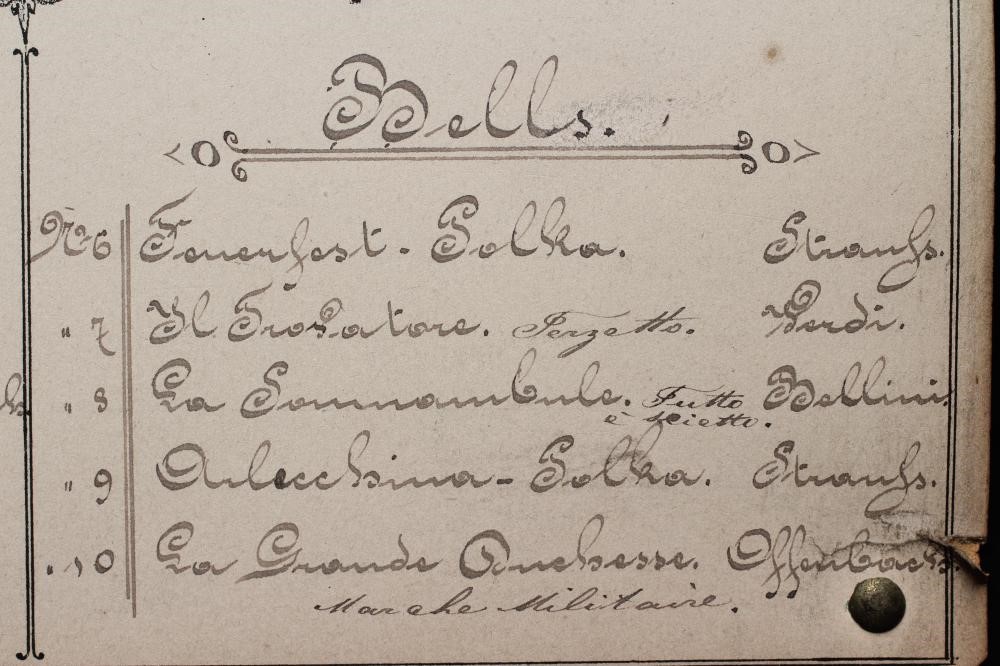 Bells.
No 6 Feuerfest - Polka. Strauss.
" 7 Il Trovatore. Terzetto. Verdi.
" 8 La Somnambule. Tutto Bellini.
è scietto.
" 9 Arlecchina - Polka. Strauss.
" 10 La Grande Duchesse. Offenbach.
Marche Militaire.